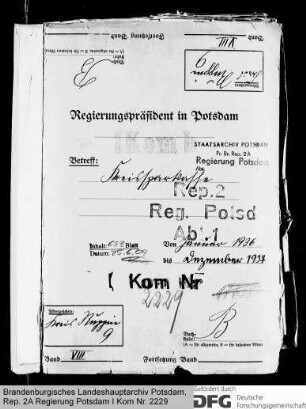 Fortsetzung Band
Band
VIII
Regierungspräsident in Potsdam
STAATSARCHIV POTSDAM
Pr. Br. Rep. 2A
Regierung Potsdam
Betreff:
Kreissparkasse
Rep. 2
Reg. Potsd
Abt. I
Inhalt: 653 Blatt
Von Januar 1936
Datum:
bis Dezember 1937
I Kom Nr
2229
Kreis Ruppin
9
B
Band VIII
Fortsetzung Band
Brandenburgisches Landeshauptarchiv Potsdam,
Rep. 2A Regierung Potsdam I Kom Nr. 2229
Gefördert durch
DFG Deutsche
Forschungsgemeinschaft